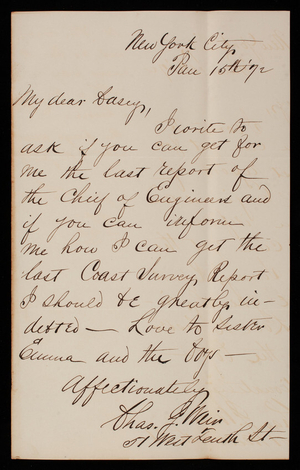 New York City,
Jan 15th '72
My dear Casey,
I write to
ask if you can get for
me the last report of
the Chief of Engineers and
if you can inform
me how I can get the
last Coast Survey Report
I should be greatly in-
debted — Love to sister
Emma and the boys —
Affectionately
Chas. J. Weir
51 West Tenth St —